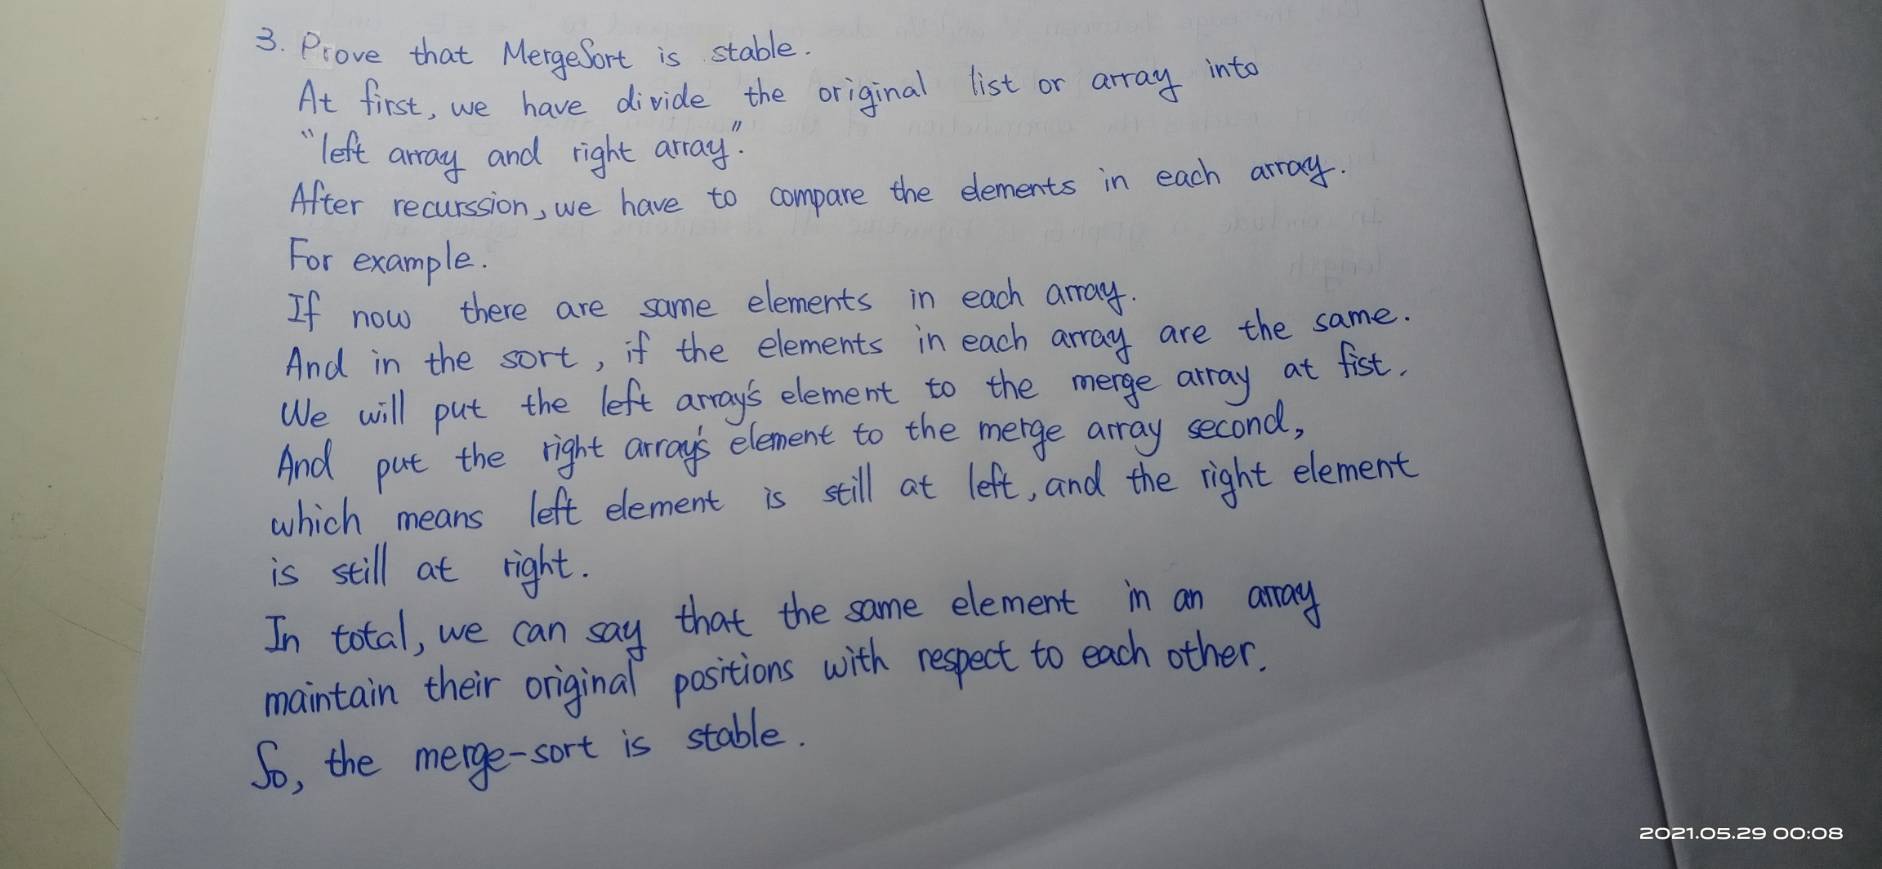 3. Prove that MergeSort is stable.
At first, we have divide the original list or array into
"left array and right array".
After recurssion, we have to compare the elements in each array.
For example.
If now there are same elements in each array.
And in the sort, if the elements in each array are the same.
We will put the left array's element to the merge array at fist.
And put the right array's element to the merge array second,
which means left element is still at left, and the right element
is still at right.
In total, we can say that the same element in an array
maintain their original positions with respect to each other.
So, the merge-sort is stable.
2021.05.29 00:08